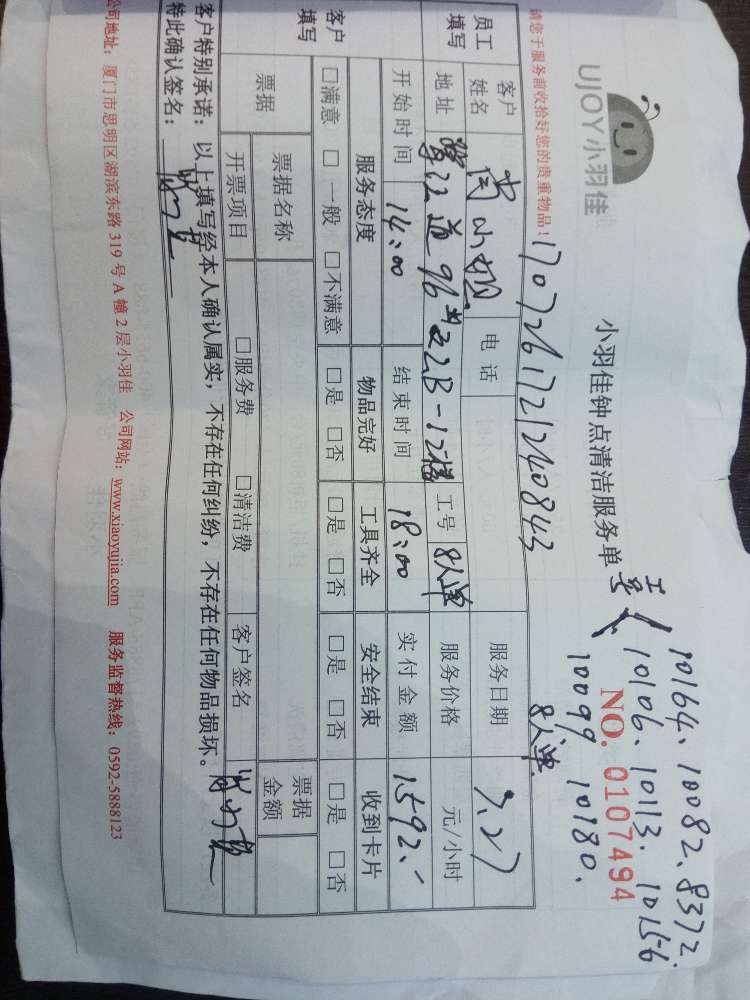 UJOY小羽佳
小羽佳钟点清洁服务单
工号
10164、10082、8372
10106、10113、10156
10099、10180、
NO. 0107494
8人单
请您于服务前收拾好您的贵重物品!
1707261721240843
员工填写
客户姓名
小姐
电话
服务日期
7.27
地址
96号22B-12楼
工号
8人单
服务价格
元/小时
开始时间
14:00
结束时间
18:00
实付金额
1592.-
客户填写
服务态度
物品完好
工具齐全
安全结束
收到卡片
□满意 □一般 □不满意
□是 □否
□是 □否
□是 □否
□是 □否
票据
票据名称
票据金额
开票项目
□服务费 □清洁费
客户签名
客户特别承诺:以上填写经本人确认属实,不存在任何纠纷,不存在任何物品损坏。
特此确认签名:
公司地址:厦门市思明区湖滨东路 319 号 A 幢 2 层小羽佳 公司网站:www.xiaoyujia.com 服务监督热线:0592-5888123